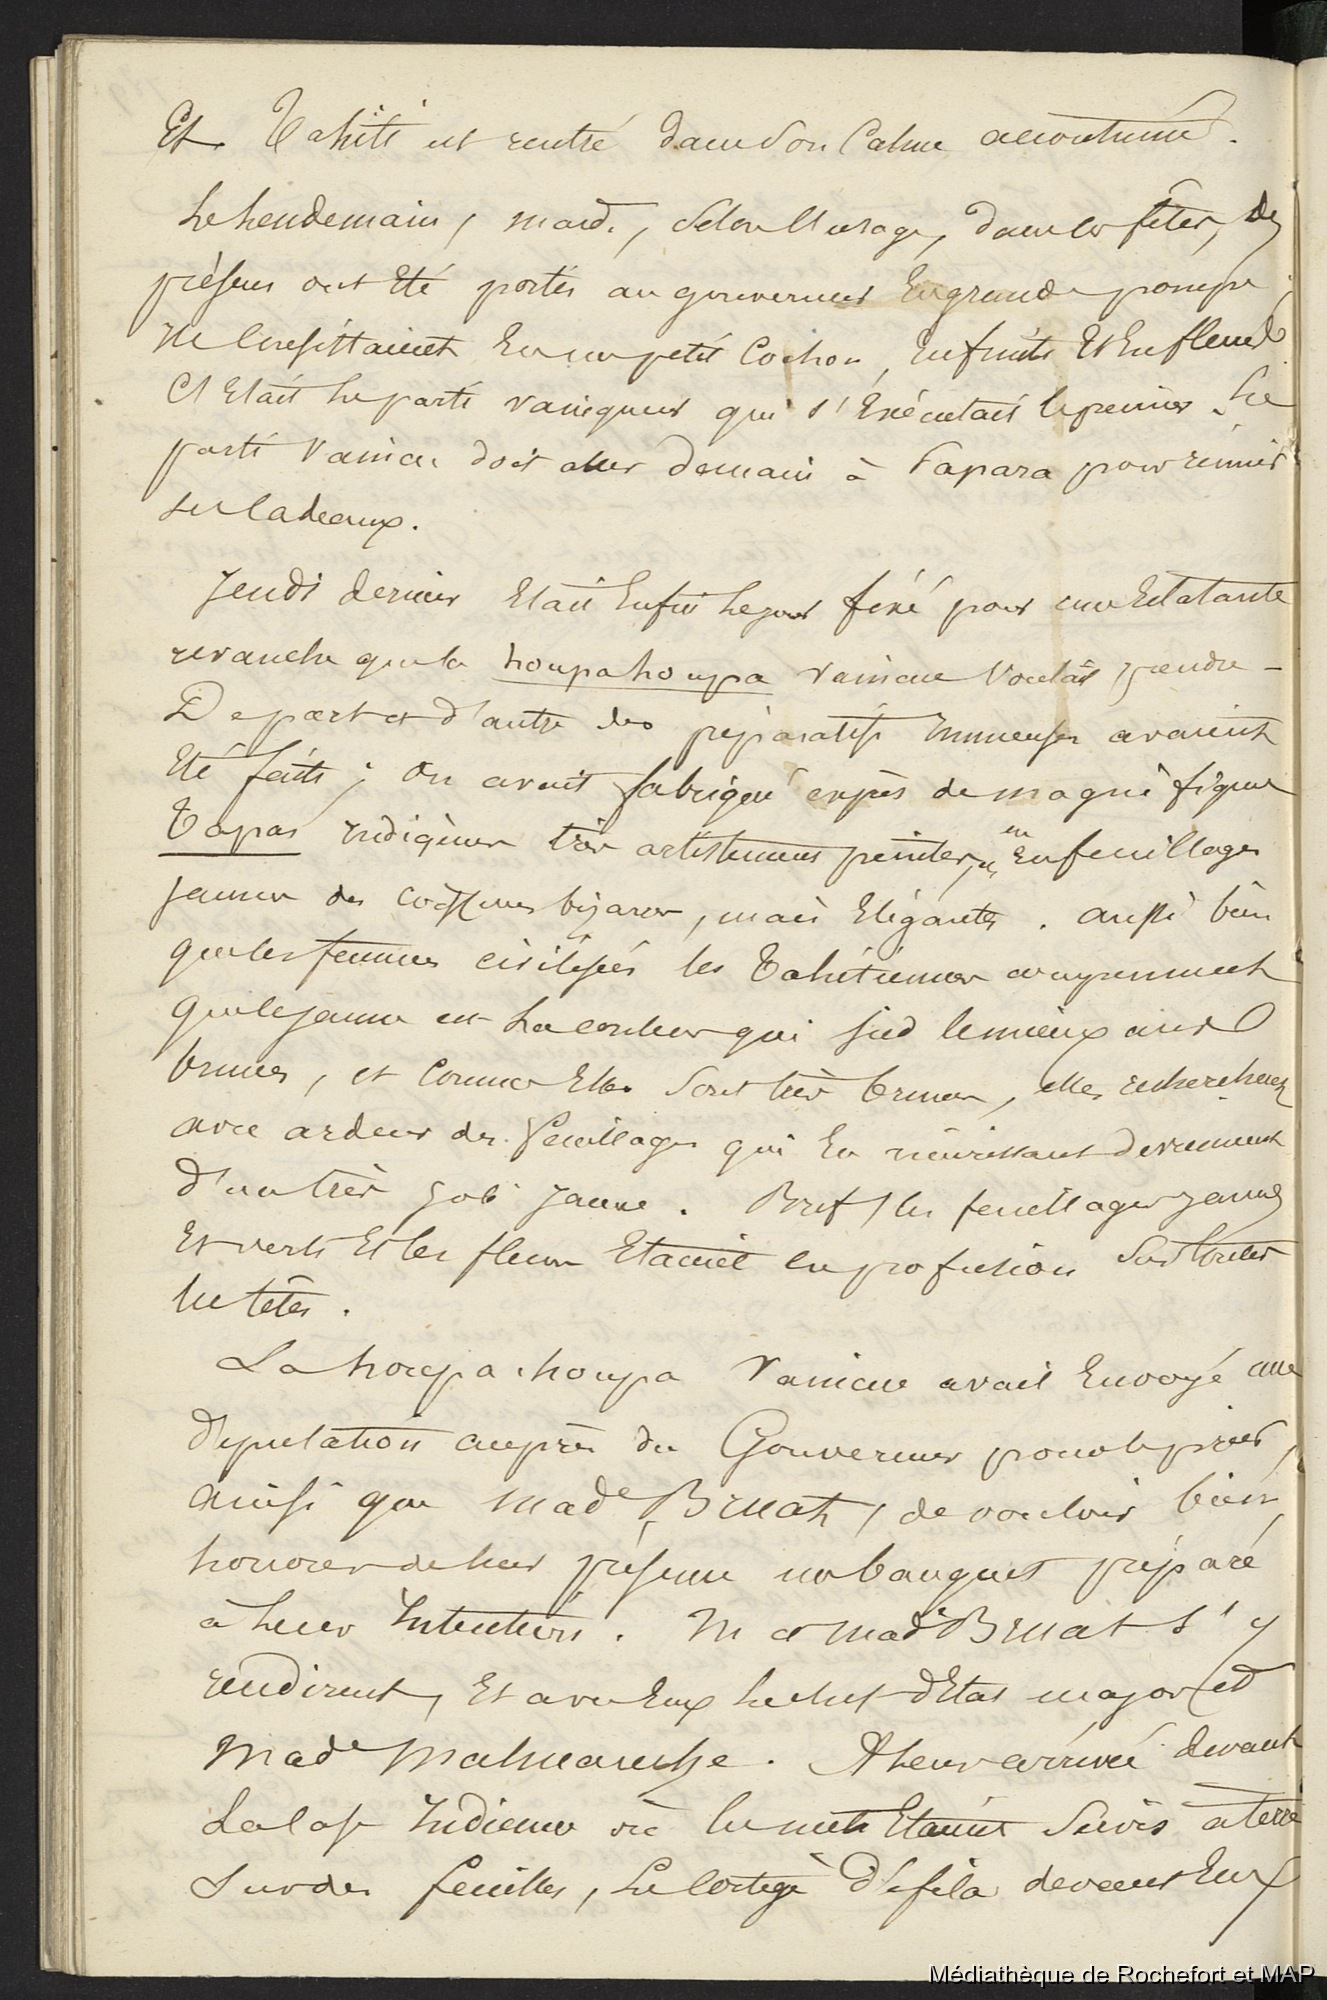 Et Tahiti est rentré dans son Calme accoutumé.
Le lendemain, mardi, selon l'usage, dans les fêtes, des
présens ont Eté portés au gouverneur En grande pompe;
ils Consistaient En un petit Cochon, En fruits Et En fleurs
C'Etait le parti vainqueur qui s'Exécutait le premier. Le
parti vaincu doit aller demain à Papara pour réunir
ses Cadeaux.
Jeudi dernier Etait Enfin le jour fixé pour une Eclatante
revanche que la houpahoupa vaincue voulait prendre -
De part et d'autre des préparatifs Immenses avaient
Eté faits; on avait fabriqué exprès de magnifiques
Tapas Indigènes très artistement peintes, et en En feuillages
jaunes des costumes bizares, mais Elégants. aussi bien
que les femmes civilisées les Tahitiennes comprennent
que le jaune est la couleur qui sied le mieux aux
brunes, et Comme Elles sont très brunes, elles recherchent
avec ardeur des feuillages qui En mûrissant deviennent
d'un très joli jaune. Bref, les feuillages jaunes
Et verts Et les fleurs Etaient en profusion sur toutes
les têtes.
La houpa-houpa Vaincue avait Envoyé une
députation auprès du Gouverneur pour le prier,
ainsi que Made Bruat, de vouloir bien
honorer de leur présence un banquet préparé
à leur Intention. M et Made Bruat s'y
rendirent, Et avec Eux le chef d'Etat major et
Made Malmanche. A leur arrivée devant
La Case Indienne où les mets Etaient servis à terre
sur des feuilles, Le Cortège défila devant Eux
Médiathèque de Rochefort et MAP